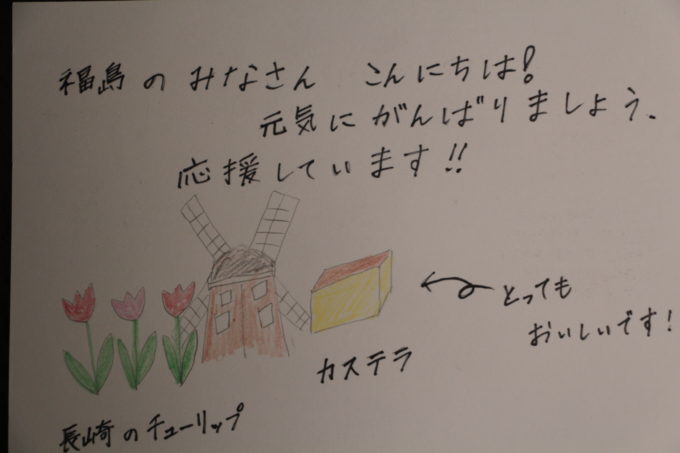 福島のみなさん　こんにちは!
元気にがんばりましょう、
応援しています!!
とっても
おいしいです!
カステラ
長崎のチューリップ